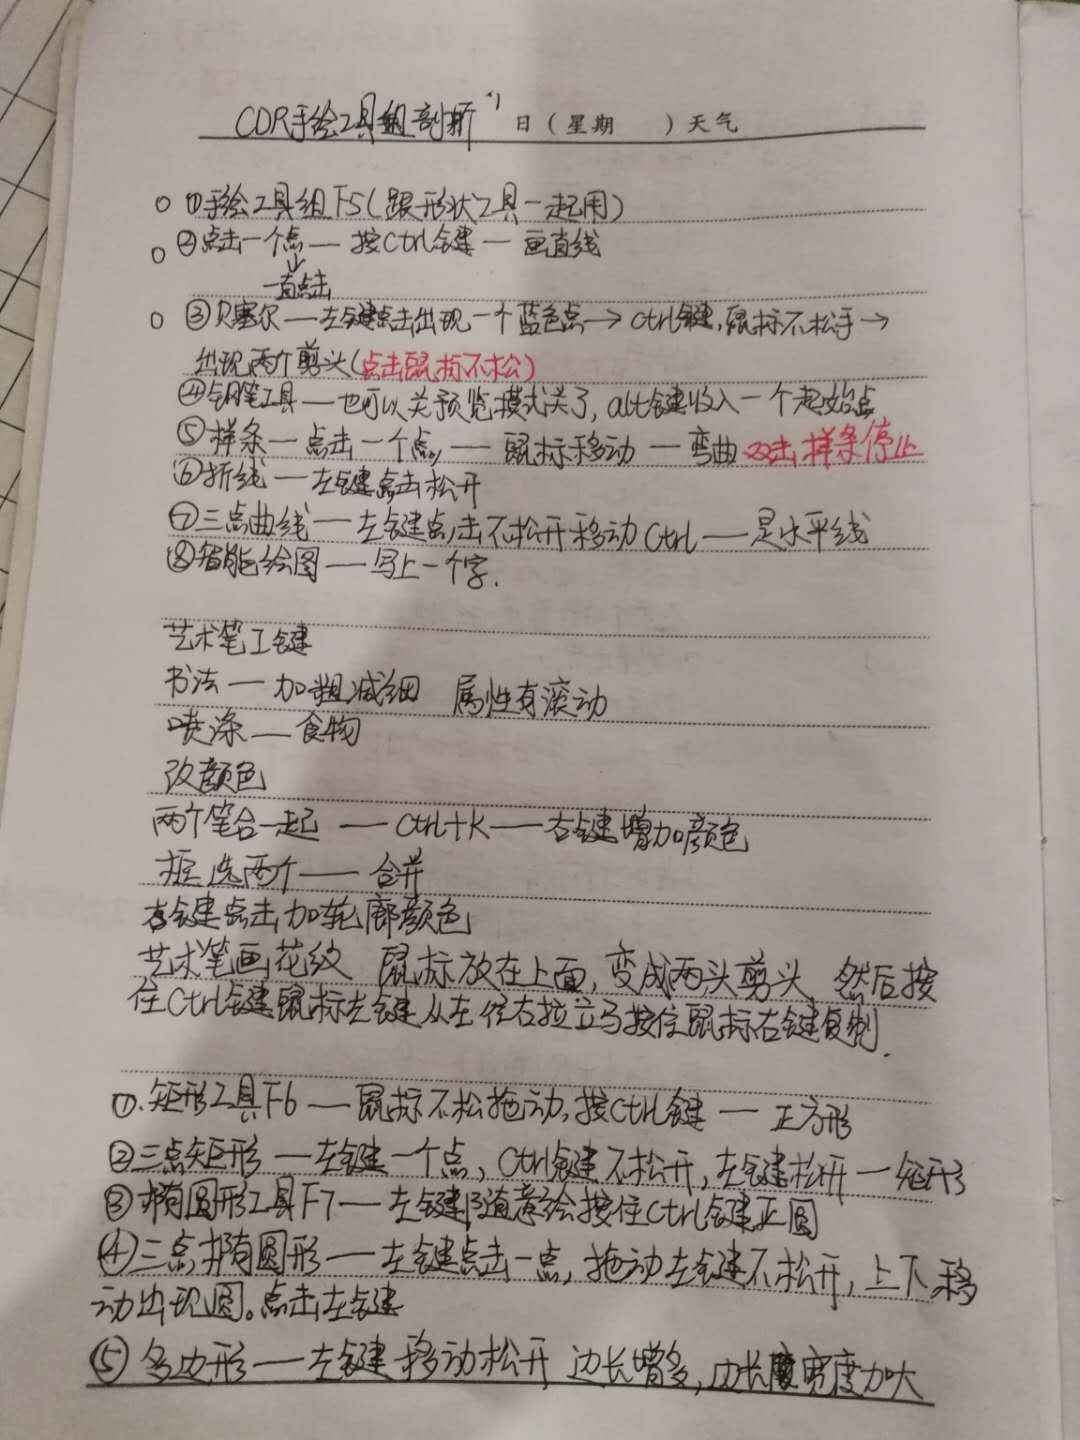 CDR手绘工具组剖析 日（星期 ）天气
①手绘工具组F5(跟形状工具一起用)
②点击一个点—按Ctrl键—画直线
↓
一直点击
③贝塞尔—左键点击出现一个蓝色点→Ctrl键,鼠标不松手→
出现两个剪头(点击鼠标不松)
④钢笔工具—也可以关预览模式关了,alt键收入一个起始点
⑤样条—点击一个点,—鼠标移动—弯曲 双击样条停止
⑥折线—左键点击松开
⑦三点曲线—左键点击不松开移动Ctrl—是水平线
⑧智能绘图—写上一个字.
艺术笔工键
书法—加粗减细 属性有滚动
喷涤—食物
改颜色
两个笔合一起—Ctrl+K—右键增加颜色
框选两个—合并
右键点击加轮廓颜色
艺术笔画花纹 鼠标放在上面,变成两头剪头,然后按
住Ctrl键鼠标左键从左往右拉立马按住鼠标右键复制.
①.矩形工具F6—鼠标不松拖动,按Ctrl键—正方形
②三点矩形—左键一个点,Ctrl键不松开,左键松开—矩形
③椭圆形工具F7—左键随意绘按住Ctrl键正圆
④三点椭圆形—左键点击一点,拖动左键不松开,上下移
动出现圆。点击左键
⑤多边形—左键移动松开 边长增多,边长宽度加大